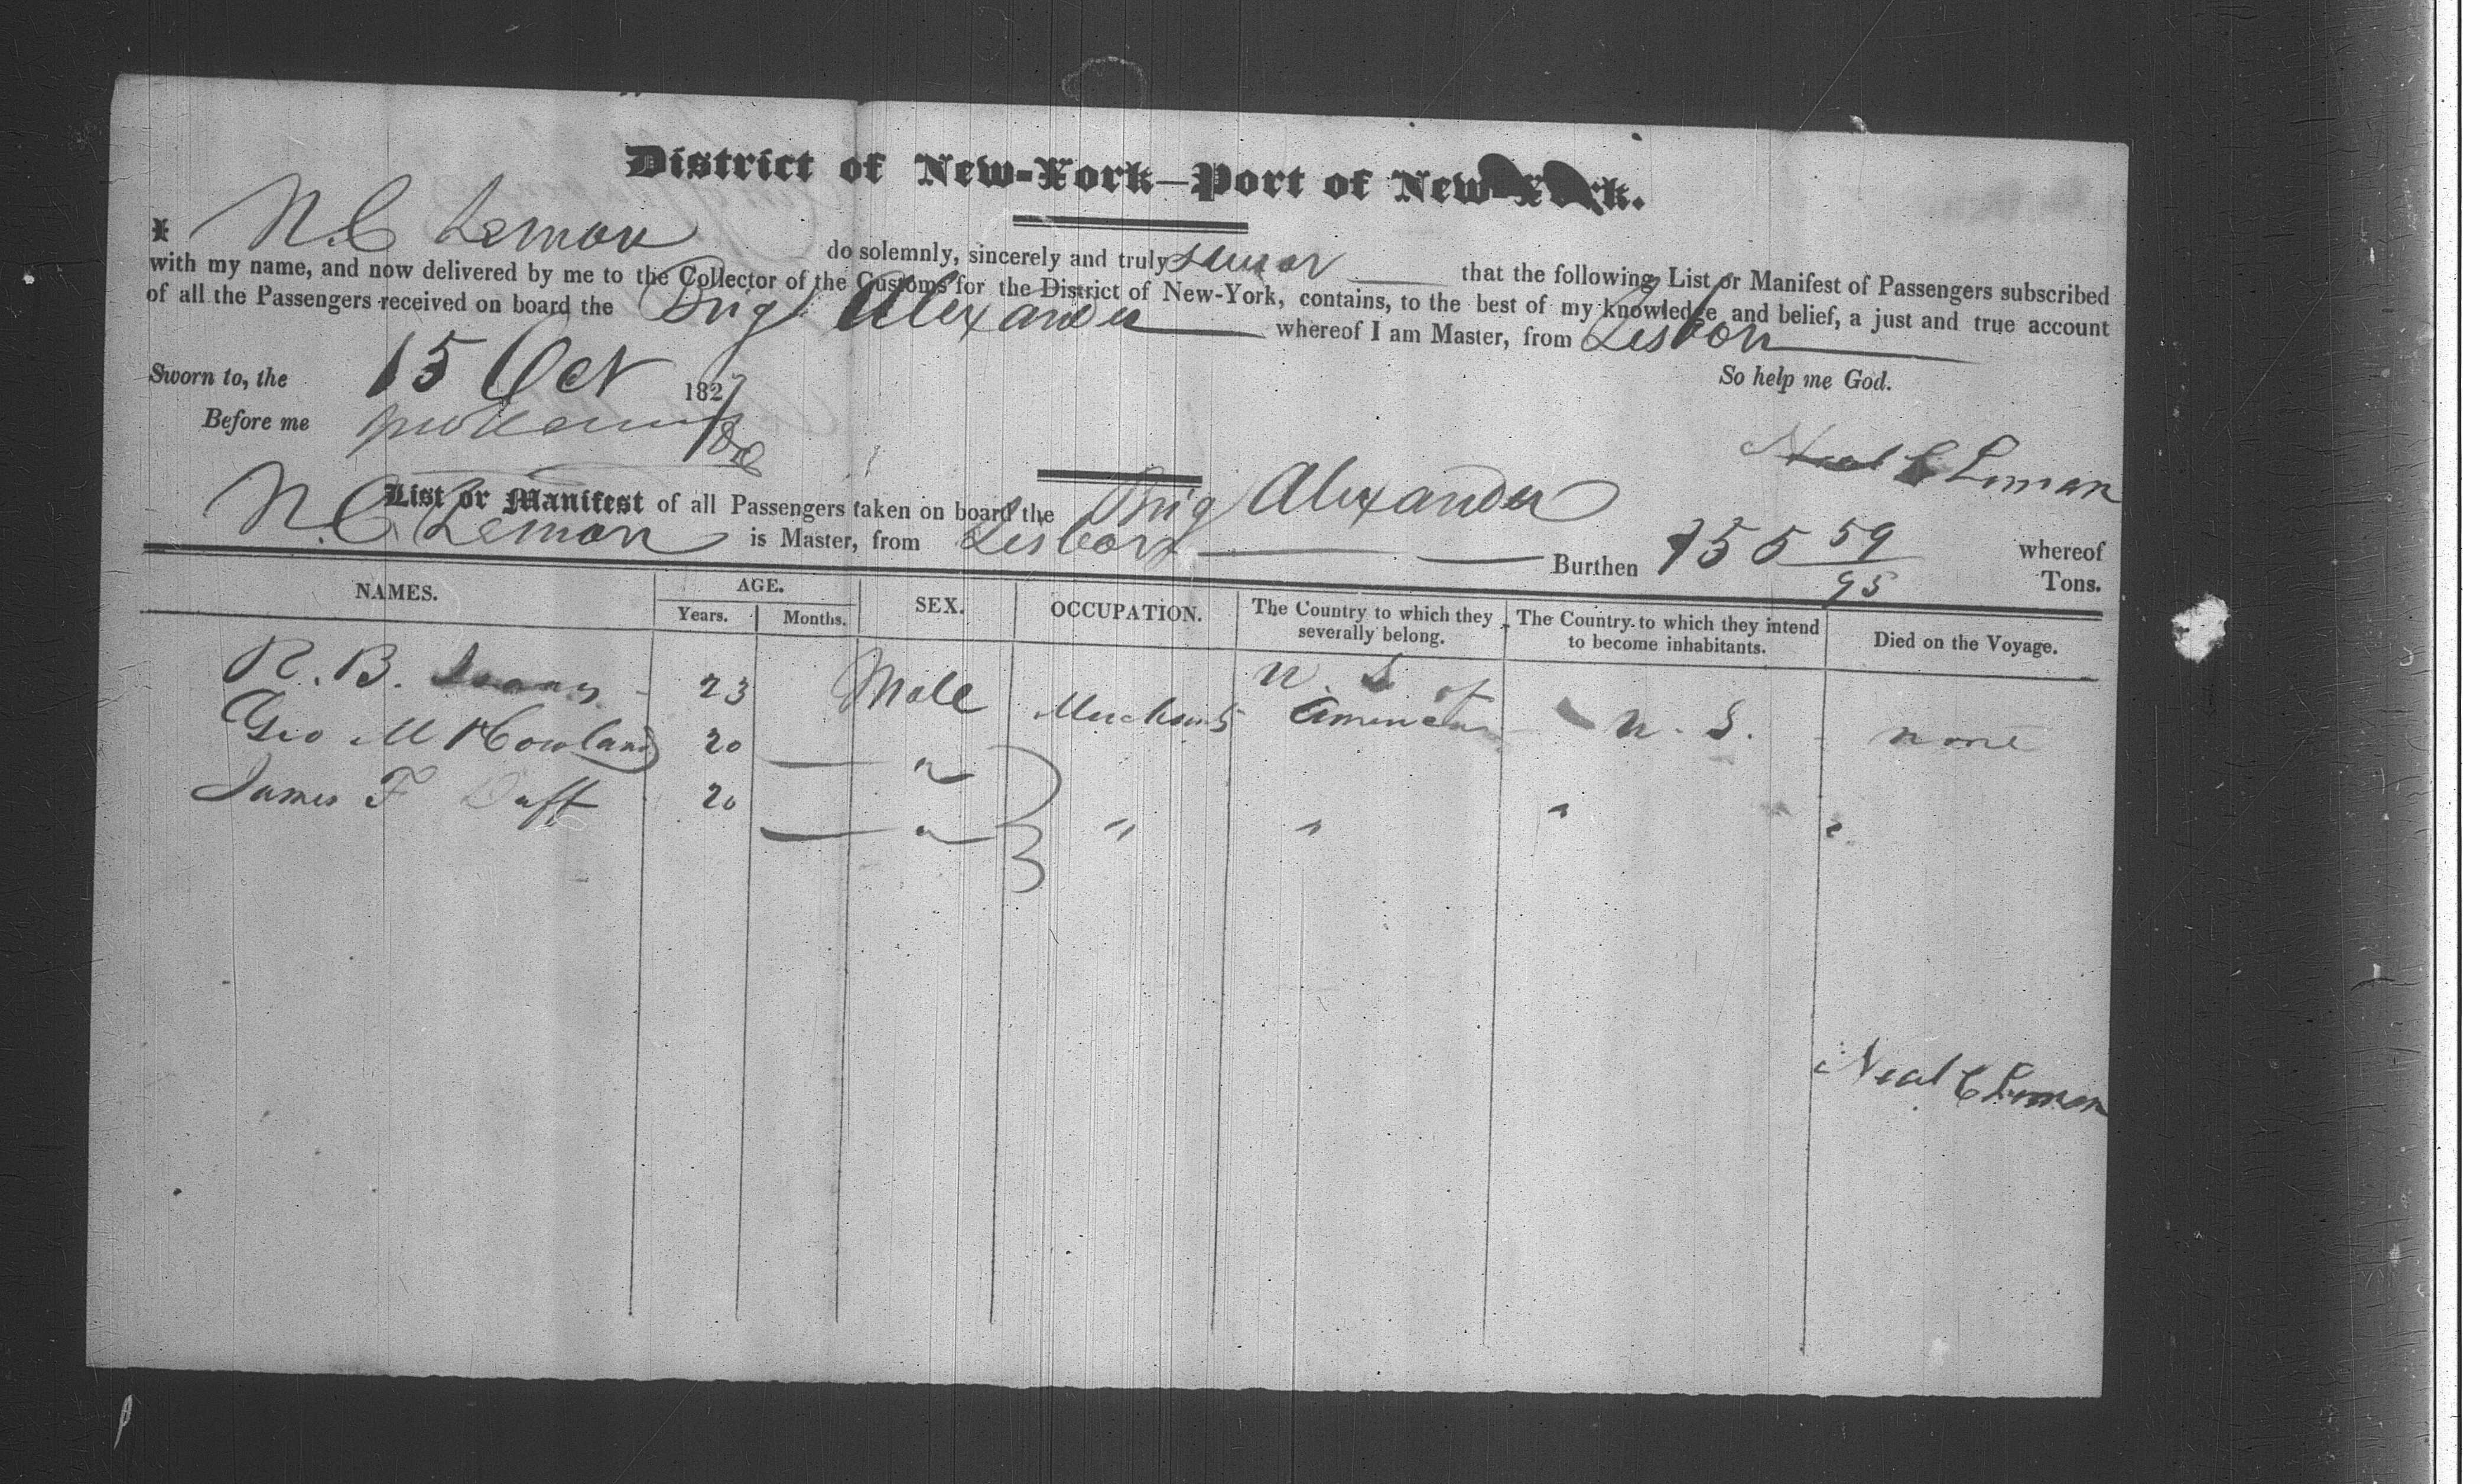 District of New-York—Port of New-York.
I N. C Leman do solemnly, sincerely and truly swear that the following List or Manifest of Passengers subscribed
with my name, and now delivered by me to the Collector of the Customs for the District of New-York, contains, to the best of my knowledge and belief, a just and true account
of all the Passengers received on board the Brig Alexander whereof I am Master, from Lisbon
Sworn to, the 15 Oct 1827 So help me God.
Before me
Neal C Leman
List or Manifest of all Passengers taken on board the Brig Alexander whereof
N. C. Leman is Master, from Lisbon Burthen 155 59/95 Tons.
NAMES. AGE. SEX. OCCUPATION. The Country to which they severally belong. The Country to which they intend to become inhabitants. Died on the Voyage.
Years. Months.
R. B. 23 Male Merchants U. S of America U. S. none
Geo M Howland 20 "
James F Duff 20 " " " " "
Neal C Leman